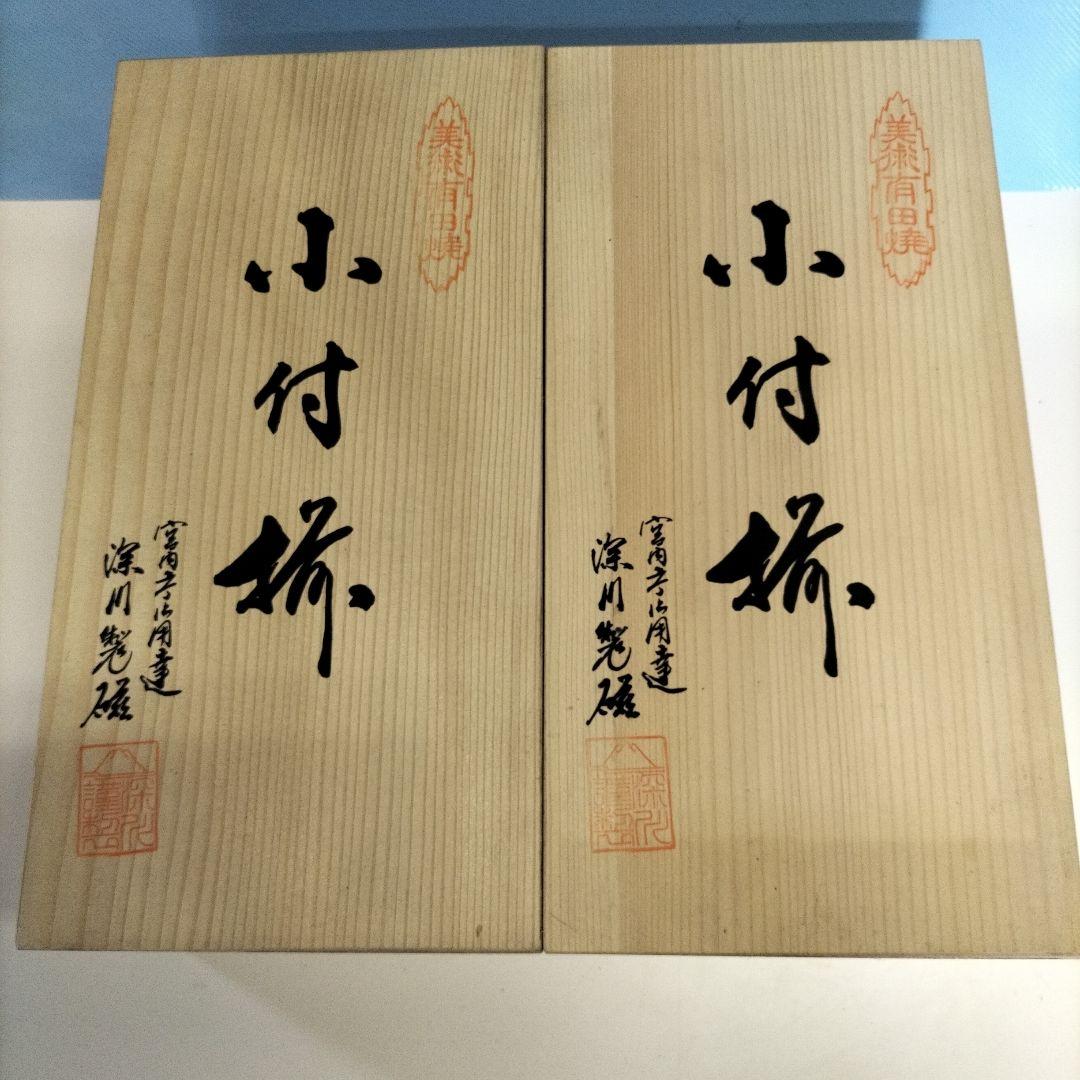 美術有田燒
小付揃
宮内庁御用達
深川製磁
深川謹製
美術有田燒
小付揃
宮内庁御用達
深川製磁
深川謹製